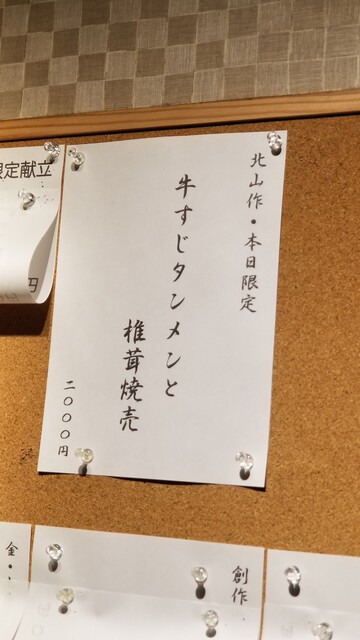 北山作・本日限定
牛すじタンメンと
椎茸焼売
二〇〇〇円
定献立
円
創作
金・